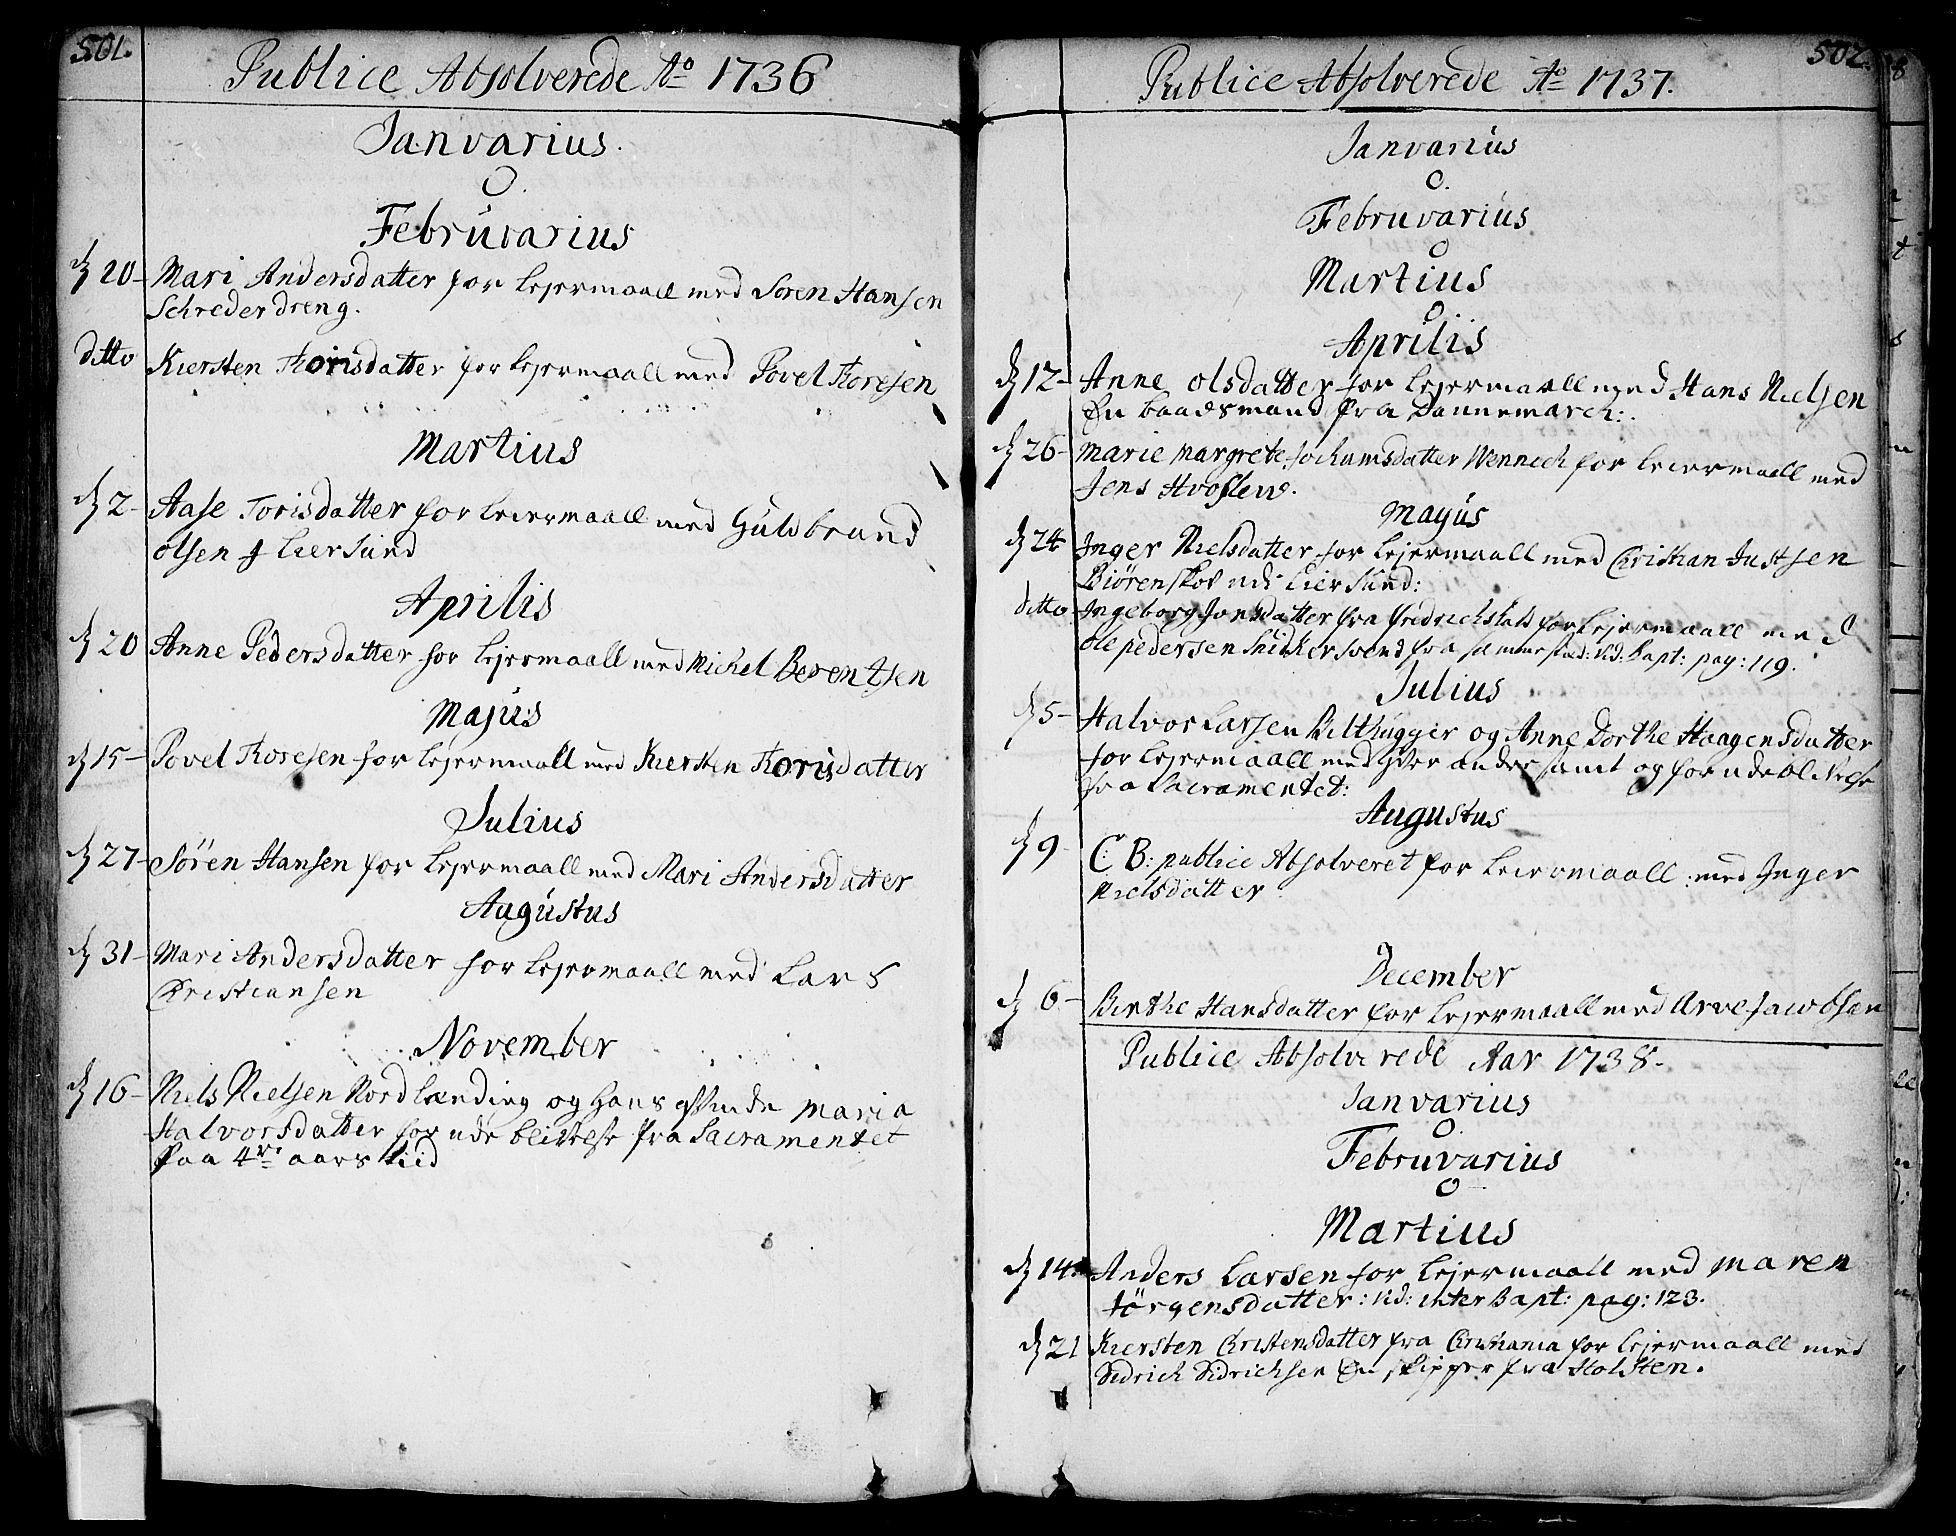 501.
Publice Absolverede Ao 1736
Ianvarius.
O.
Februvarius
d 20- Mari Andersdatter for Lejermaall med Søren Hansen
Schreder dreng.
ditto Kiersten Torisdatter for Lejermaall med Povel Toresen
Martius
d 2- Aase Torisdatter for Leiermaall med Guldbrand
olsen J Liersund
Aprilis
d 20 Anne Pedersdatter for Lejermaall med Michel Berentsen
Majus
d 15- Povel Toresen for Lejermaall med Kiersten Torisdatter
Julius
d 27- Søren Hansen for Lejermaall med Mari Andersdatter
Augustus
d 31- Mari Andersdatter for Lejermaall med Lars
Christiansen
November
d 16- Niels Nielsen Nordlænding og Hans qvinde Maria
Halvorsdatter for udeblivelse fra Sacramentet
paa 4re aars tiid
502.
Publice Absolverede Ao 1737.
Ianvarius
O.
Februvarius
O
Martius
O
Aprilis
d 12- Anne olsdatter for Lejermaall med Hans Nielsen
En baadsmand fra Dannemarch:
d 26- Marie Margrete Jochumsdatter Wennech for Leiermaall med
Jens Hvoslew.
Mayus
d 24 Inger Nielsdatter for Lejermaall med Christian Justsen
Biørenskov ude Liersund:
ditto Ingeborg Jonsdatter fra Fredrichstad for Lejermaall med
ole pedersen Snidker svend fra samme stad: vid: Bapt: pag: 119.
Julius
d 5- Halvor Larsen Pelthugger og Anne Dorthe Haagensdatter
for Lejermaall med hver ander samt og for udeblivelse
fra Sacramentet:
Augustus
d 9- C B: publice Absolveret for Leiermaall med Inger
Nielsdatter
December
d 6- Birthe Hansdatter for Lejermaall med Arve Jacobsen
Publice Absolverede Aar 1738.
Ianvarius
O
Februvarius
O
Martius
d 14 Anders Larsen for Lejermaall med Maren
Jörgensdatter: vid: inter Bapt: pag: 123.
d 21 Kiersten Christensdatter fra Christiania for Lejermaall med
Didrich Didrichsen En skipper fra Holsten.